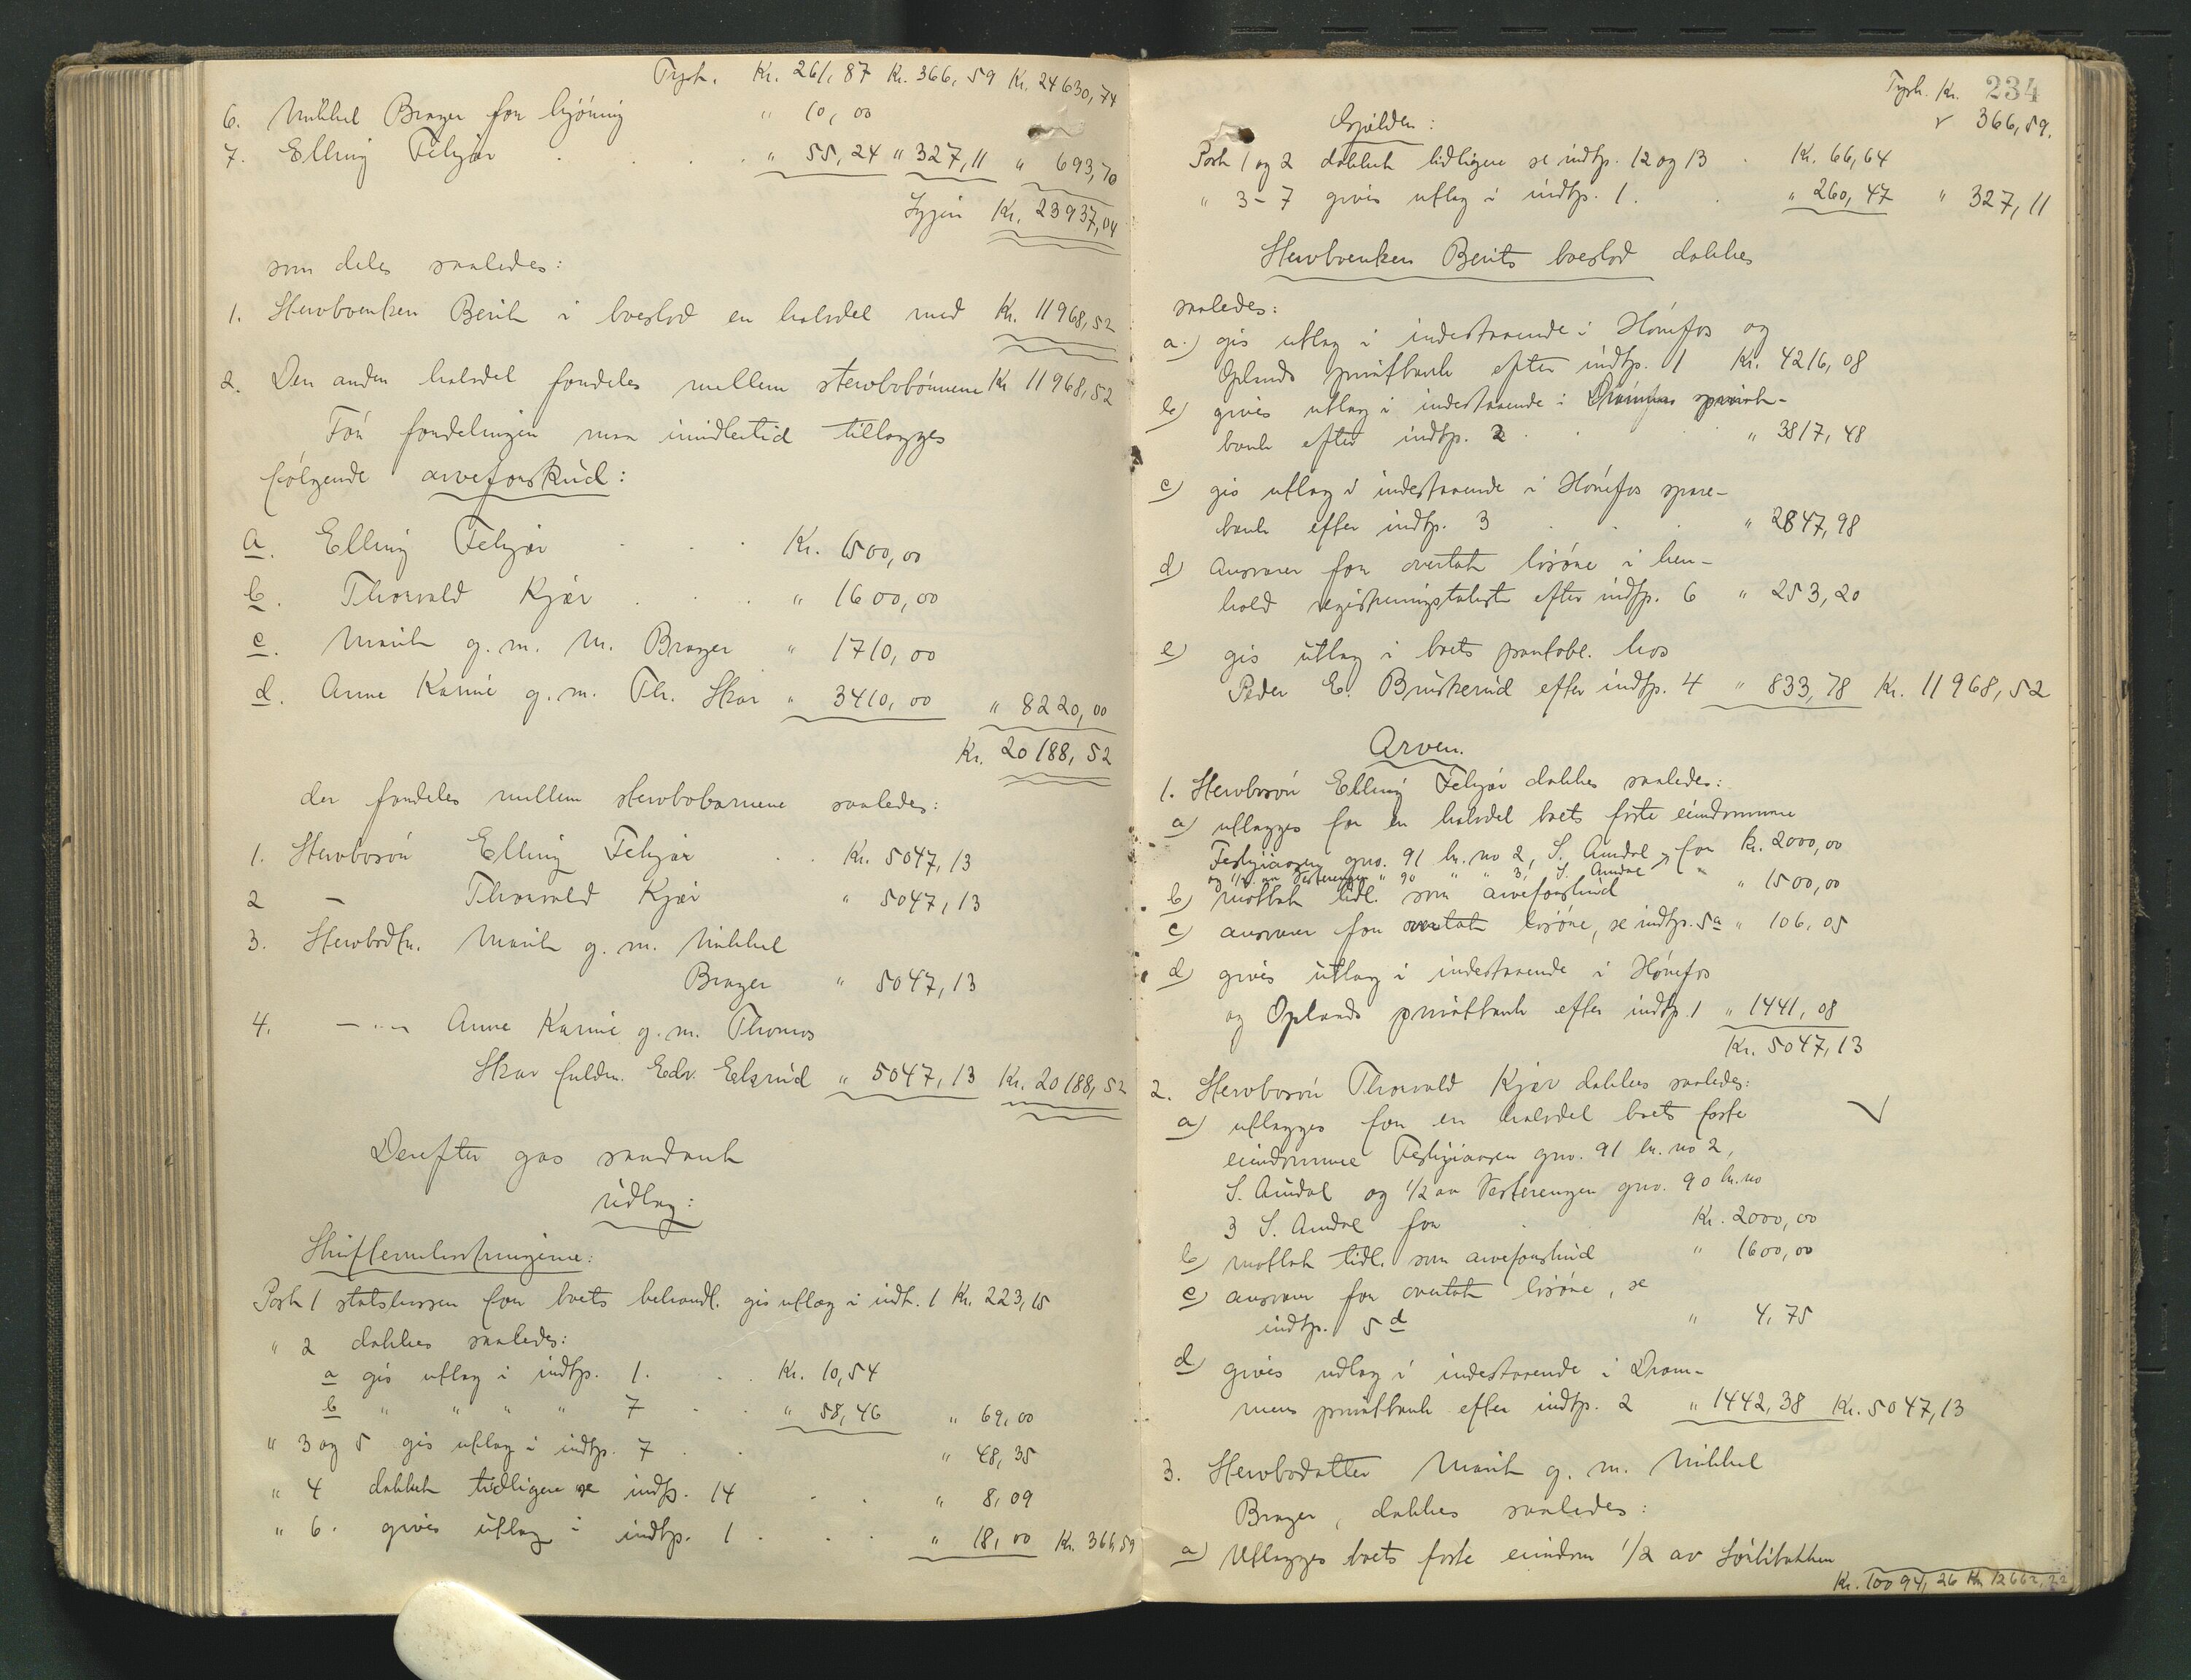 Trpt. Kr. 261,87 Kr. 366,59 Kr. 24630,74
6. Mikkel Brager for kjöring " 10,00
7. Elling Feligjær . . . . " 55,24 " 327,11 " 693,70
Igjen Kr. 23937,04
som deles saaledes:
1. Stervboenken Berit i boeslod en halvdel med Kr. 11968,52
2. Den anden halvdel fordeles mellem stervbobörnene Kr 11968,52
För fordelingen maa imidlertid tillægges
følgende arveforskud:
a. Elling . . . Kr. 1500,00
b. Thorvald Kjær . . . " 1600,00
c. Marit g. m. M. Brager " 1710,00
d. Anne Karine g. m. Th. Skar " 3410,00 " 8220,00
Kr. 20188,52
der fordeles mellem stervbobarnene saaledes:
1. Stervbosön Elling . . Kr. 5047,13
2 — Thorvald Kjær " 5047,13
3. Stervbodtr. Marit g. m. Mikkel
Brager " 5047,13
4. —"— Anne Karine g. m. Thomas
Skar fuldm. Edv. Elsrud " 5047,13 Kr. 20188,52
Derefter gas saadant
udlæg:
Skifteomkostningerne:
Post 1 statskassen for boets behandl. gis utlæg i indt. 1 Kr. 223,15
" 2 dækkes saaledes:
a gis utlæg i indtp. 1. . . Kr. 10,54
b " " " " 7 . . " 58,46 " 69,00
" 3 og 5 gis utlæg i indtp. 7 . . " 48,35
" 4 dækket tidligere se indtp. 14 . . " 8,09
" 6. gives utlæg i indtp. 1 . . . " 18,00 Kr. 366,59
234
Trpt. Kr.
366,59.
Gjælden:
Post 1 og 2 dækket tidligere se indtp. 12 og 13 . Kr. 66,64
" 3-7 gives utlæg i indtp. 1. . " 260,47 " 327,11
Stervboenken Berits boeslod dækkes
saaledes:
a.) gis utlæg i indestaaende i Hönefos og
Oplands privatbank efter indtp. 1 Kr. 4216,08
b) gives utlæg i indestaaende i Drammens privat-
bank efter indtp. 2 . . " 3817,48
c) gis utlæg i indestaaende i Hönefos spare-
bank efter indtp. 3 . . . " 2847,98
d) ansvarer for overtat lösöre i hen-
hold registreringstakst efter indtp. 6 " 253,20
e) gis utlæg i boets pantobl. hos
Peder E. Bruskerud efter indtp. 4 " 833,78 Kr. 11968,52
Arven.
1. Stervbosön Elling dækkes saaledes:
a) utlægges for en halvdel boets faste eiendomme
gno. 91 br. no 2, S. Aurdal for Kr. 2000,00
og 1/2 av Vesterengen " 90 " " 3, S. Aurdal
b) mottat tidl. som arveforskud " 1500,00
c) ansvarer for overtat lösöre, se indtp. 5a " 106,05
d) gives utlæg i indestaaende i Hönefos
og Oplands privatbank efter indtp. 1 " 1441,08
Kr. 5047,13
2. Stervbosön Thorvald Kjær dækkes saaledes:
a) utlægges for en halvdel boets faste
eiendomme gno. 91 br. no 2,
S. Aurdal og 1/2 av Vesterengen gno. 90 br. no
3 S. Aurdal for . . Kr. 2000,00
b) mottat tidl. som arveforskud " 1600,00
c) ansvarer for overtat lösöre, se
indtp. 5 d " 4,75
d) gives udlæg i indestaaende i Dram-
mens privatbank efter indtp. 2 " 1442,38 Kr. 5047,13
3. Stervbodatter Marit g. m. Mikkel
Brager, dækkes saaledes:
a) Utlægges boets faste eiendom 1/2 av
Kr. 10094,26 Kr. 12662,22